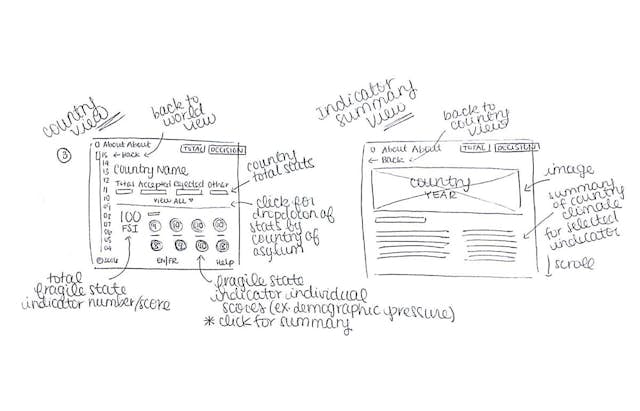 country
view
back to
world
view
3
About About
TOTAL
DECISION
← Back
15
14
13
12
11
10
09
08
07
06
05
04
country Name
Total Accepted Rejected Other
View ALL
100
FSI
EN/FR
Help
country
total stats
click for
dropdown of
stats by
country of
asylum
total
fragile state
indicator number/score
fragile state
indicator individual
scores (ex. demographic pressure)
* click for summary
Indicator
summary
view
back to
country
view
About About
TOTAL
DECISION
← Back
country
YEAR
image
summary
of country
climate
for selected
indicator
scroll